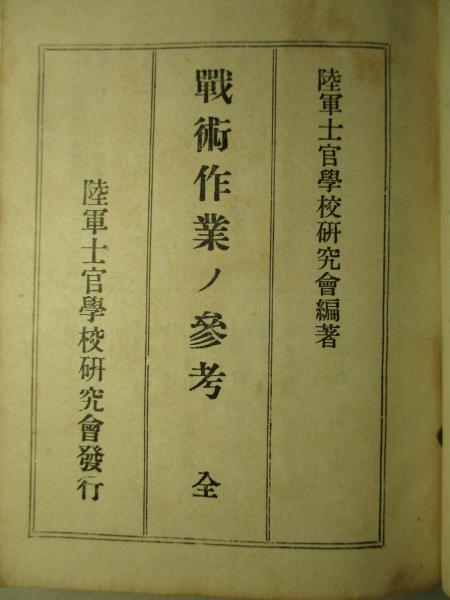 陸軍士官學校研究會編著
戰術作業ノ參考 全
陸軍士官學校研究會發行